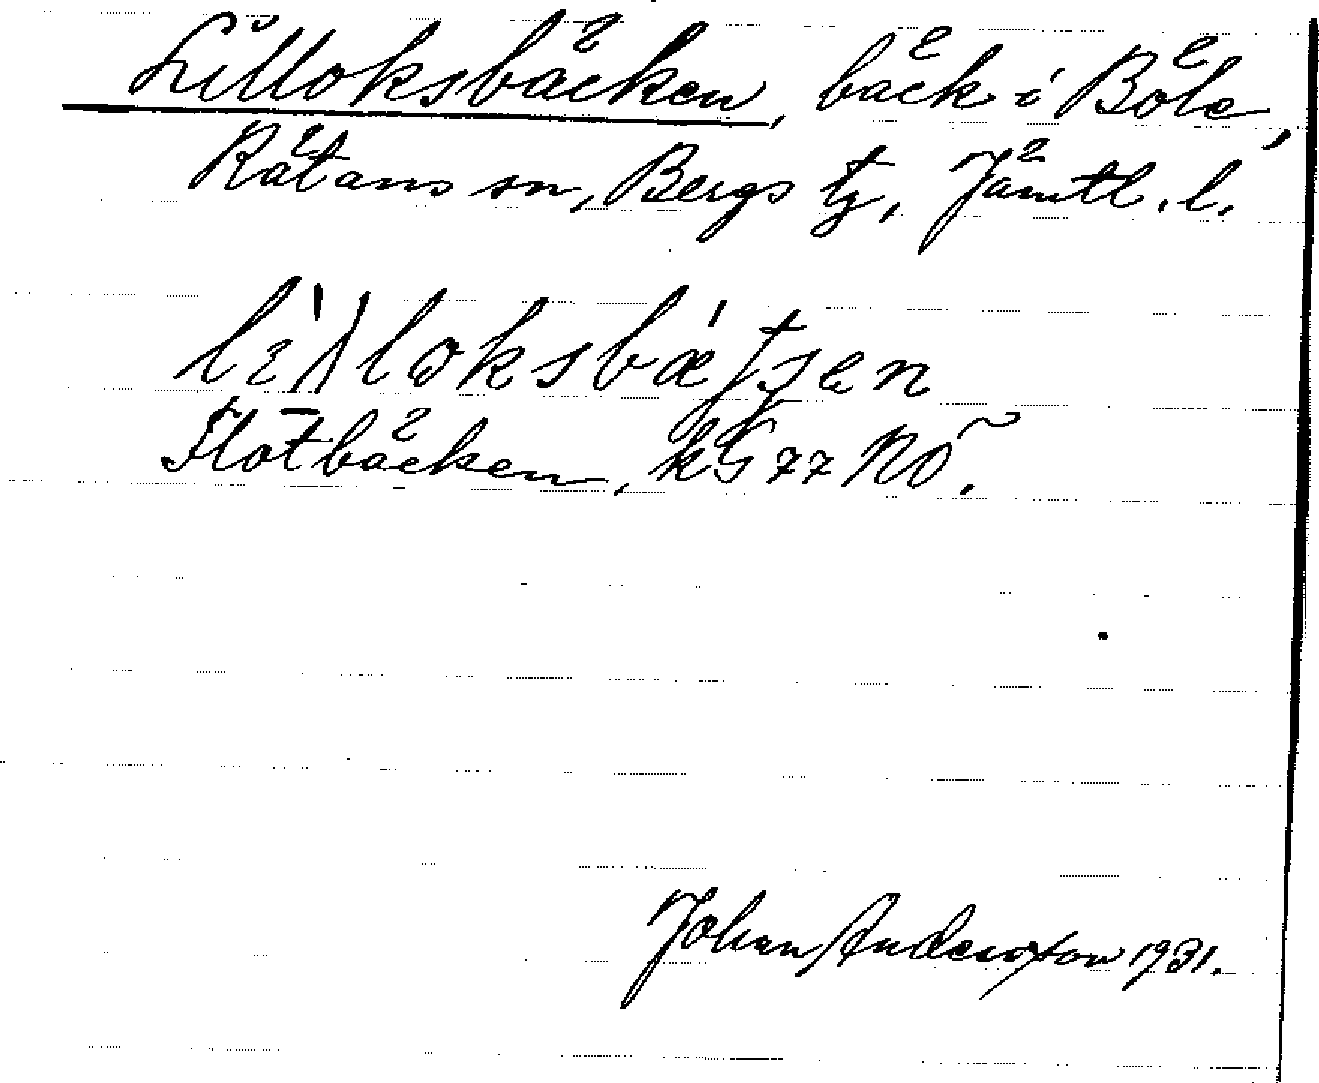 Lilloksbäcken, bäck i Böle,
Rätans sn, Bergs tg, Jämtl. l.
Flotbäcken, kG 77 NO.
Johan Andersson 1931.